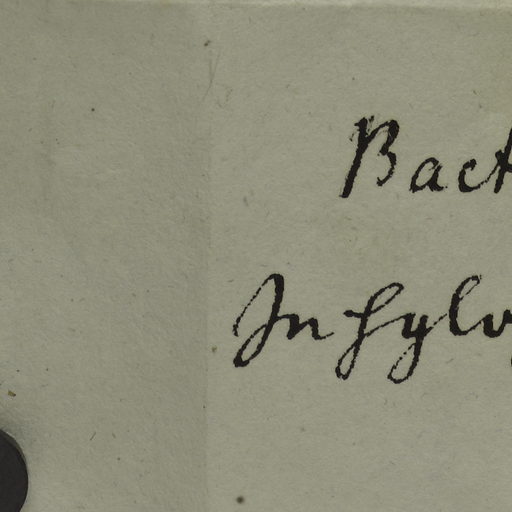 Bact
In sylv